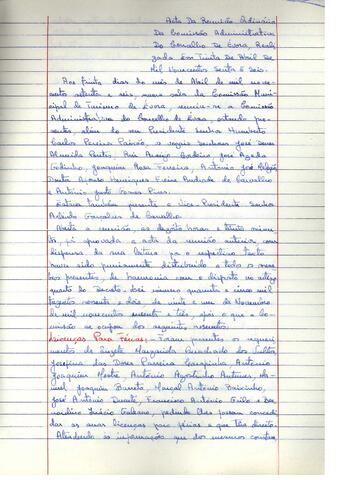 Acta Da Reunião Ordinária
Da Comissão Administrativa
Do Concelho De Évora, Reali
zada Em Trinta De Abril De
Mil Novecentos Setenta E Seis.
Aos trinta dias do mês de Abril de mil nove
centos setenta e seis, numa sala da Comissão Muni
cipal de Turismo de Évora, reuniu-se a Comissão
Administrativa do Concelho de Évora, estando pre
sentes além do seu Presidente Senhor Humberto
Carlos Pereira Paixão, os vogais senhores José Serra
Almeida Pontes, Rui Araújo Godinho, José Azeda
Godinho, Joaquim Rosa Ferreira, António José
Henriques Freire Andrade de Carvalho
e António Justo Gomes Pires.
Esteve também presente o Vice-Presidente Senhor
Gonçalves de Carvalho.
Aberta a reunião, às dezoito horas e trinta minu
tos, foi aprovada a acta da reunião anterior com
dispensa da sua leitura por o respectivo texto
haver sido previamente distribuído a todos os mem
bros presentes, de harmonia com o disposto no artigo
quarto do Decreto-Lei número quarenta e cinco mil
trezentos sessenta e dois, de vinte e um de Novembro
de mil novecentos sessenta e três, após o que a Co
missão se ocupou dos seguintes assuntos:
Licenças Para Férias: - Foram presentes os requeri
mentos de Margarida dos Santos
Josefina das Dores Parreira António
Joaquim Mestre António Agostinho Antunes, Ma
nuel Joaquim Barreto, Marçal António
José António Duarte, Francisco António Grilo e Ber
nardino Inácio Galhano, pedindo lhes sejam concedi
das as suas licenças para férias a que têm direito.
Atendendo às informações que dos mesmos constam